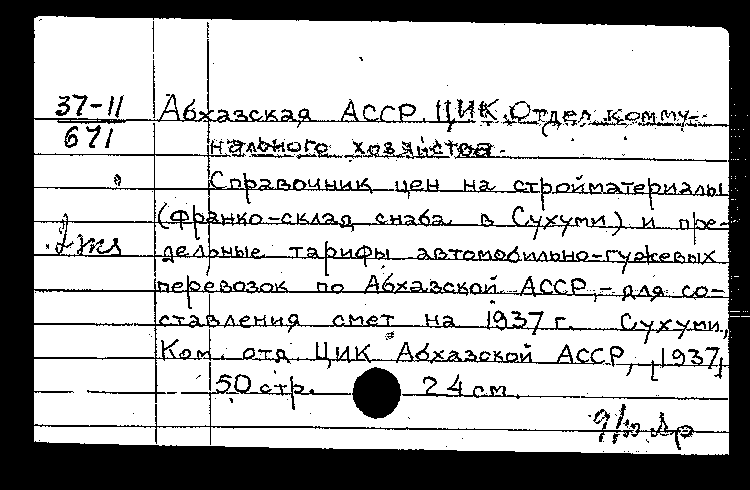 37-11
671
Абхазская АССР. ЦИК. Отдел комму-
нального хозяйства.
Справочник цен на стройматериалы
(франко-склад снаба в Сухуми) и пре-
дельные тарифы автомобильно-гужевых
перевозок по Абхазской АССР,-для со-
ставления смет на 1937 г. Сухуми,
Ком. отд. ЦИК Абхазской АССР, [1937]
50 стр. 24 см.
2 экз